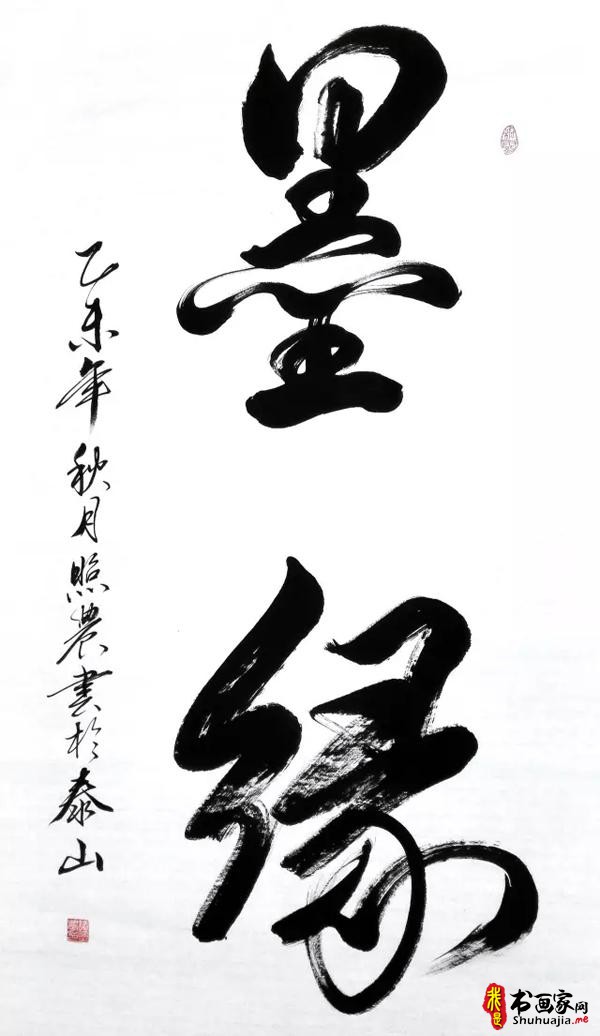 墨缘
乙未年秋月照農書於泰山
我是书画家网
Shuhuajia.me